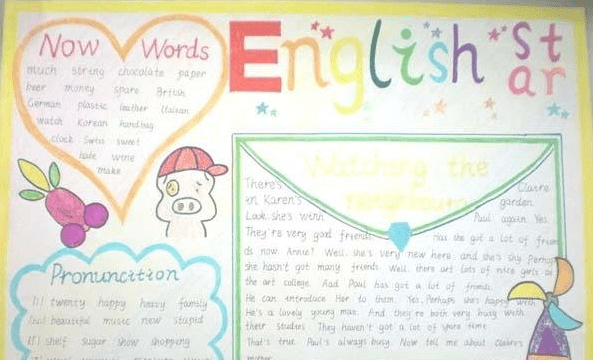 Now Words
much string chocolate paper
beer money spare British
German plastic leather Italian
watch Korean handbag
clock Swiss sweet
hate wine
make
English
St
ar
Watching the
neighbours
There's Claire
in Karen's garden.
Look, she's with Paul again. Yes,
They're very good friends. Has she got a lot of frien
ds now, Annie? Well, she's very new here, and she's shy. Perhaps
she hasn't got many friends. Well, there are lots of nice girls at
the art college. And Paul has got a lot of friends.
He can introduce her to them. Yes, Perhaps she's happy with
He's a lovely young man. And they're both very busy with
their studies. They haven't got a lot of spare time.
That's true. Paul's always busy. Now tell me about Claire's
mother.
Pronunciation
twenty happy heavy family
beautiful music new stupid
shelf sugar show shopping